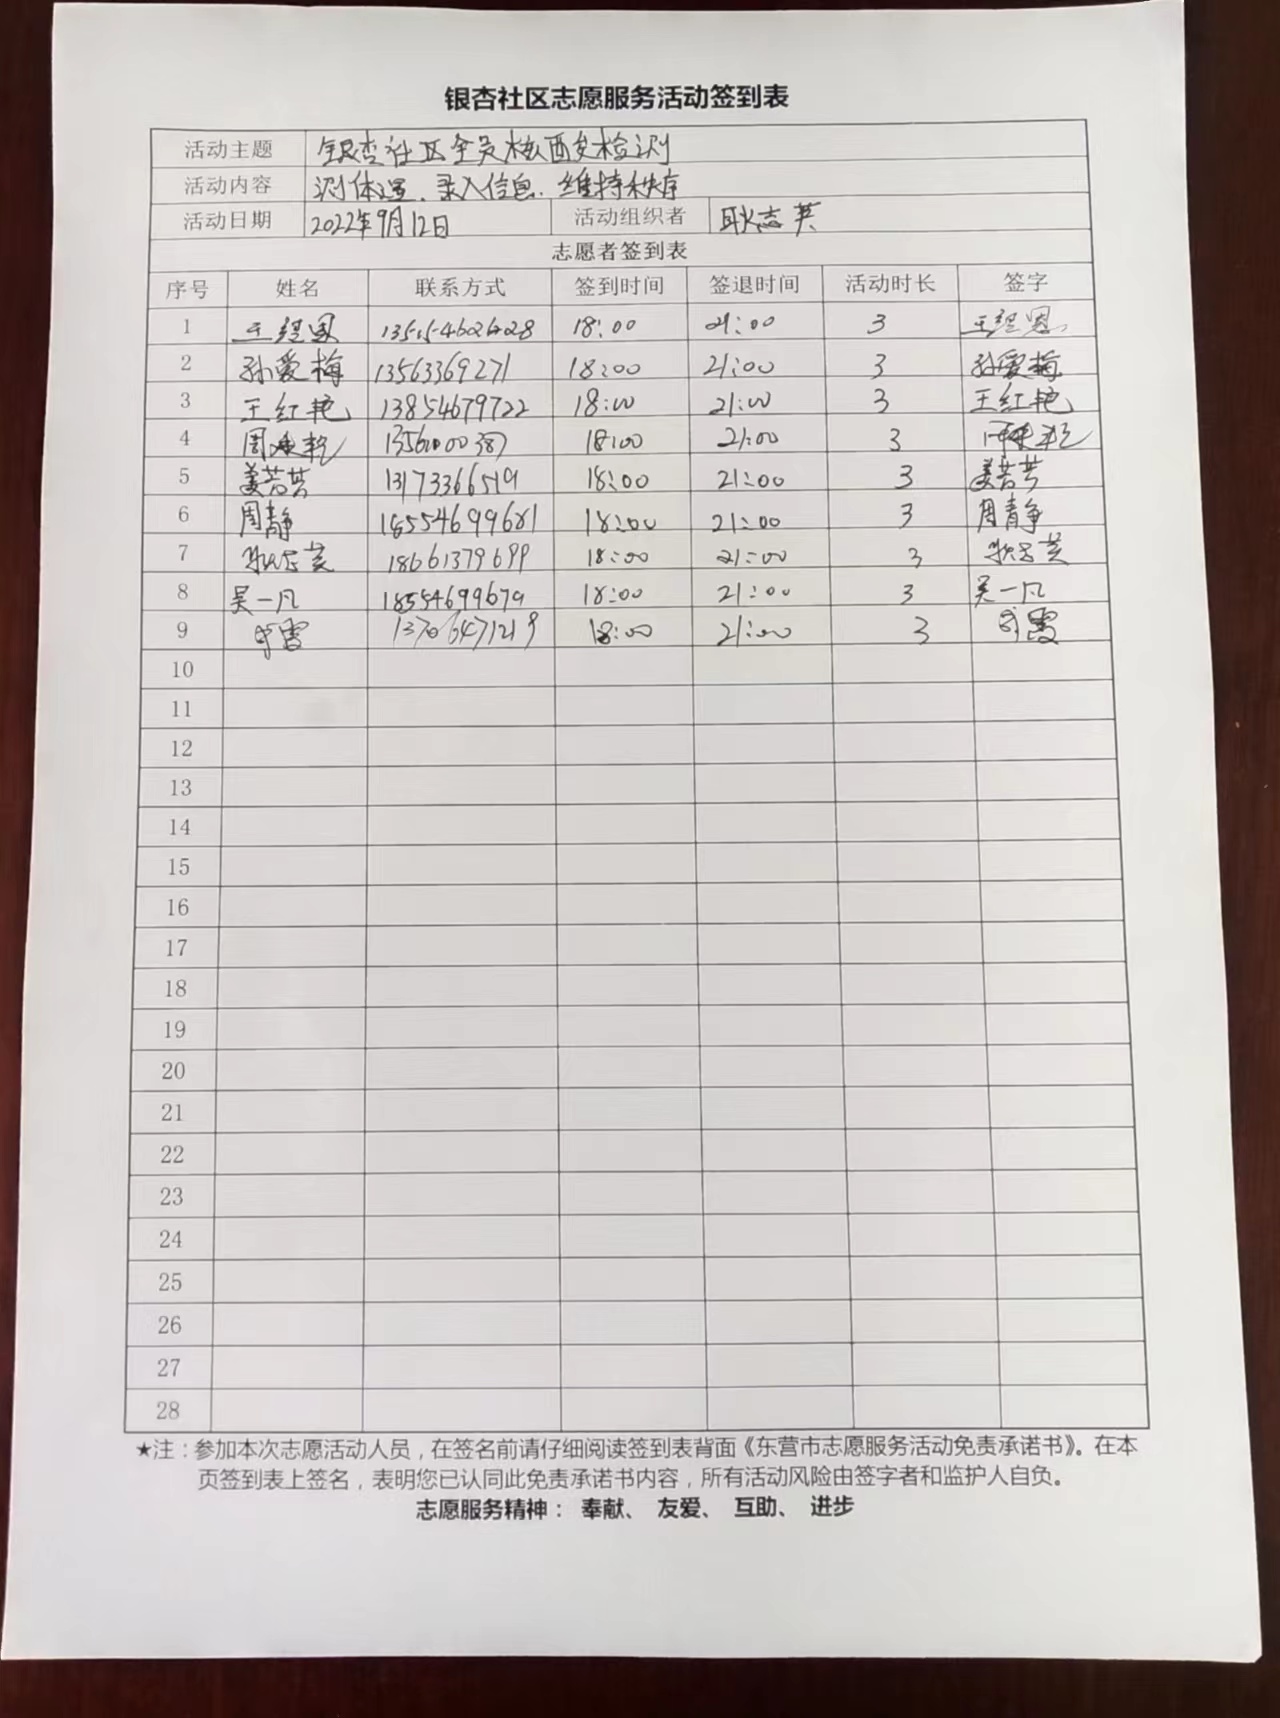 银杏社区志愿服务活动签到表
活动主题 银杏社区全员核酸检测
活动内容 测体温、录入信息、维持秩序
活动日期 2022年9月12日 活动组织者 耿志英
志愿者签到表
序号 姓名 联系方式 签到时间 签退时间 活动时长 签字
1 18:00 21:00 3
2 孙爱梅 13563369271 18:00 21:00 3 孙爱梅
3 王红艳 13854679722 18:00 21:00 3 王红艳
4 18:00 21:00 3
5 姜芸芸 13173366519 18:00 21:00 3 姜芸芸
6 周静 18554699681 18:00 21:00 3 周静
7 耿志英 18661379699 18:00 21:00 3 耿志英
8 吴一凡 18554699679 18:00 21:00 3 吴一凡
9 13706471219 18:00 21:00 3
10
11
12
13
14
15
16
17
18
19
20
21
22
23
24
25
26
27
28
★注：参加本次志愿活动人员，在签名前请仔细阅读签到表背面《东营市志愿服务活动免责承诺书》。在本
页签到表上签名，表明您已认同此免责承诺书内容，所有活动风险由签字者和监护人自负。
志愿服务精神： 奉献、 友爱、 互助、 进步